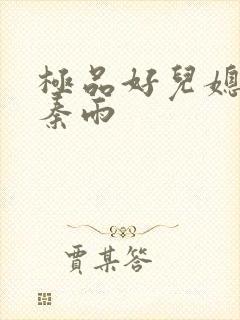 極品好兒媳
秦雨
賈某答